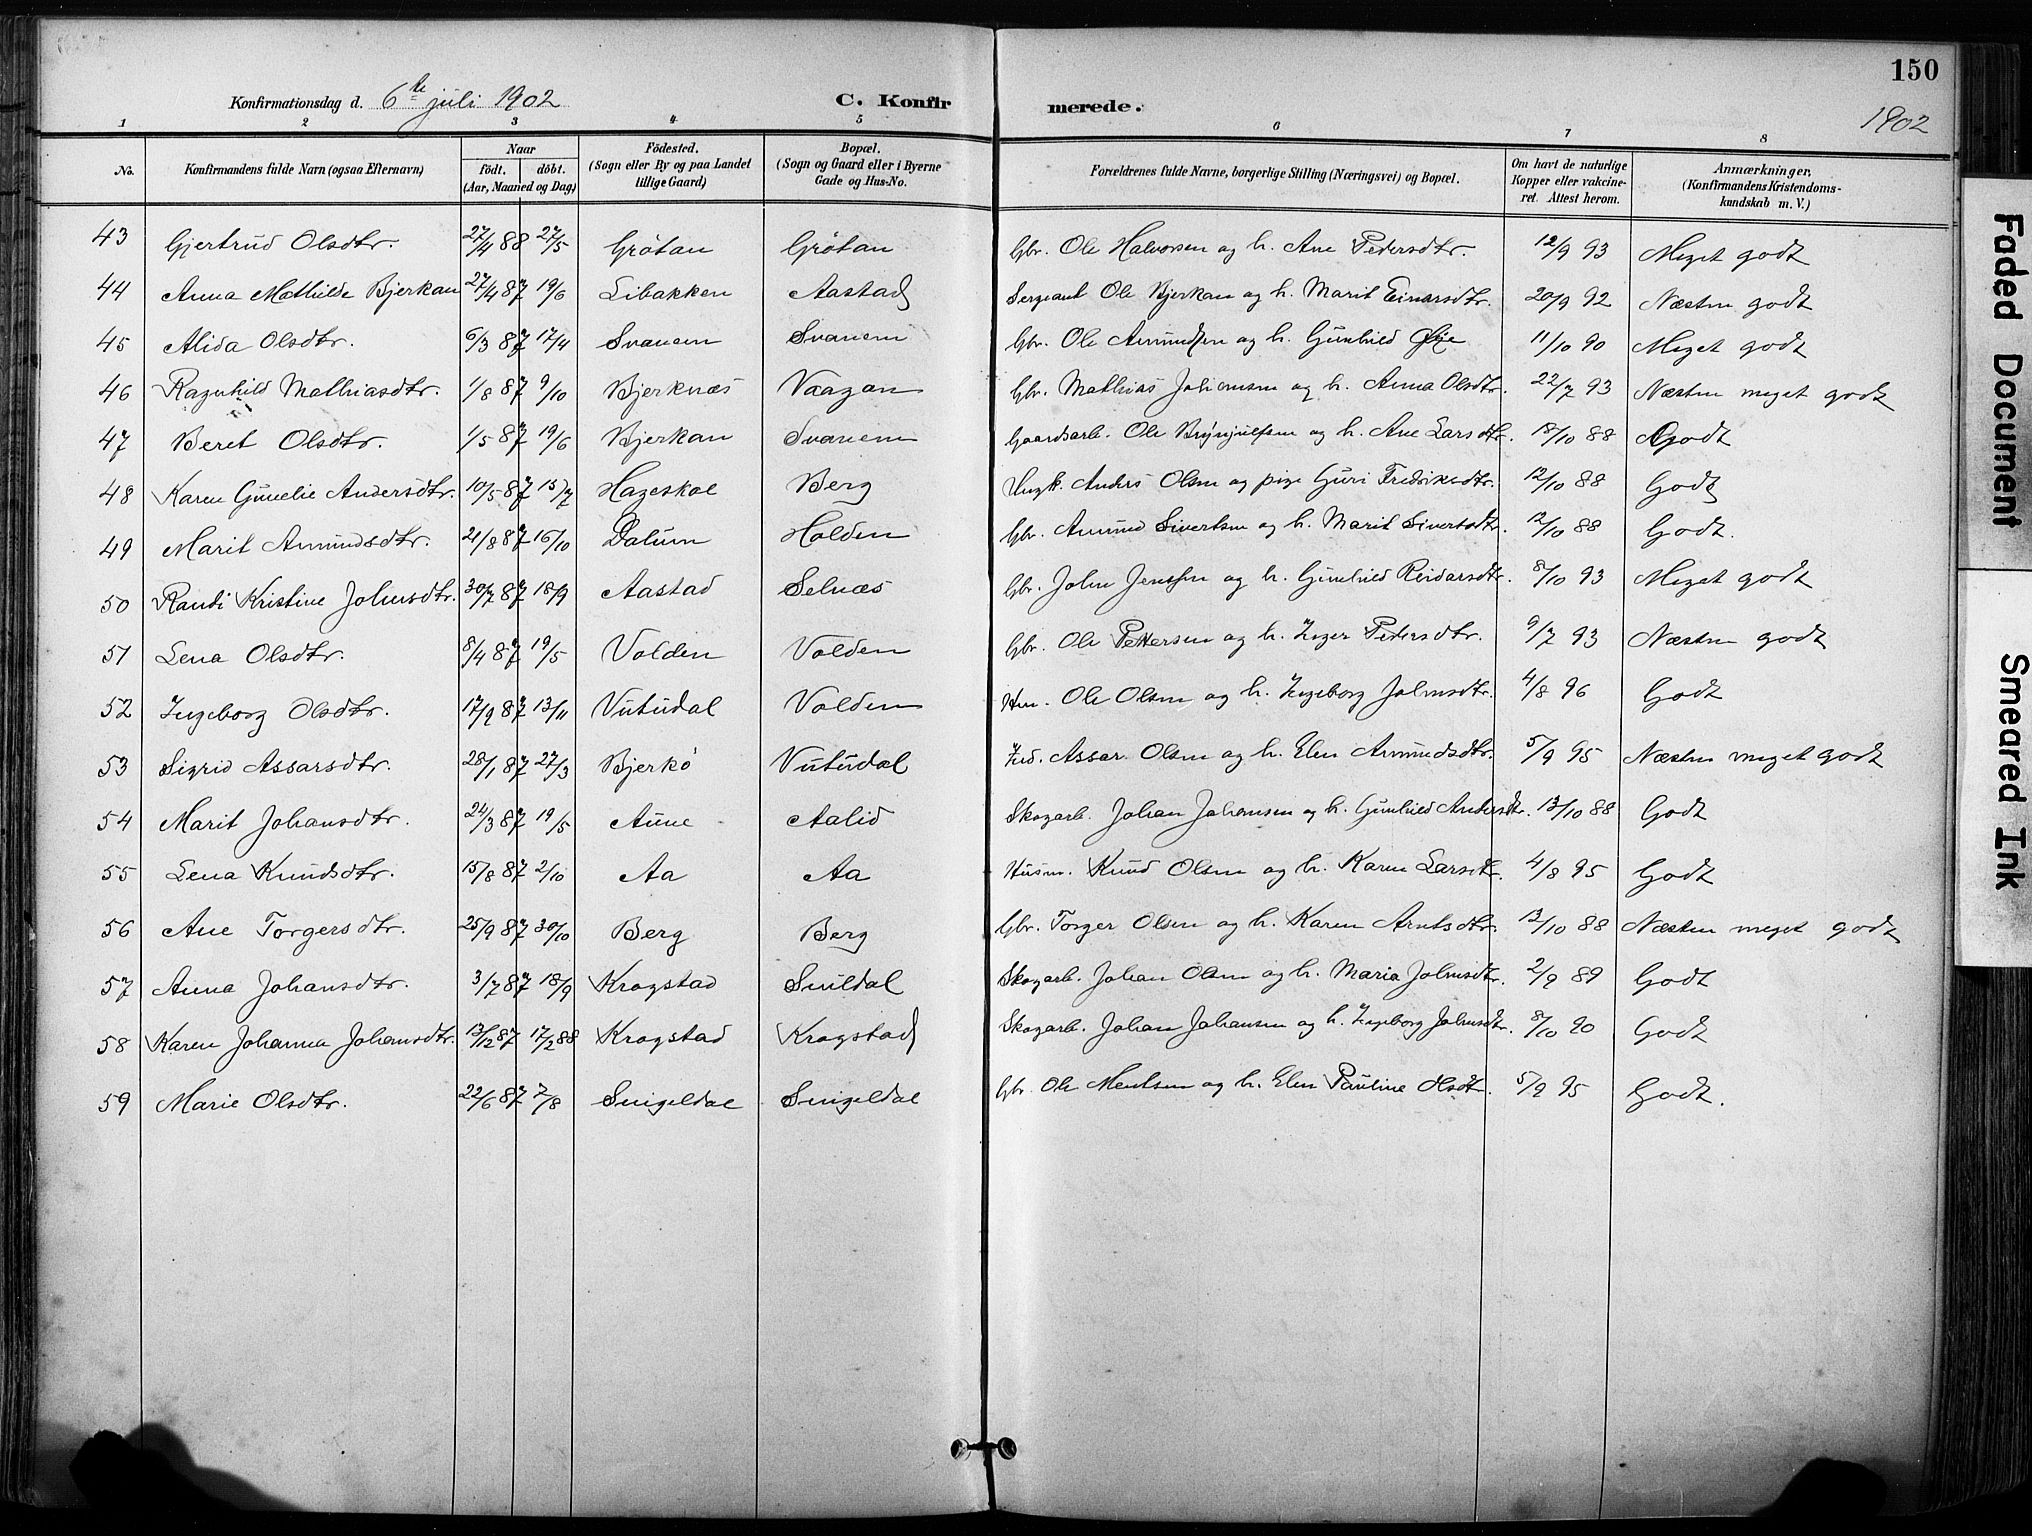 150
Konfirmationsdag d. 6te juli 1902 C. Konfirmerede. 1902
1 2 3 4 5 6 7 8
No. Konfirmandens fulde Navn (ogsaa Efternavn) Naar födt. döbt. (Aar, Maaned og Dag) Födested. (Sogn eller By og paa Landet tillige Gaard) Bopæl. (Sogn og Gaard eller i Byerne Gade og Hus-No. Forældrenes fulde Navne, borgerlige Stilling (Næringsvei) og Bopæl. Om havt de naturlige Kopper eller vakcineret. Attest herom. Anmærkninger, (Konfirmandens Kristendomskundskab m. V.)
43 Gjertrud Olsdtr. 27/4 88 27/5 Grötan Grötan Gbr. Ole Halvorsen og h. Ane Pedersdtr. 12/9 93 Meget godt
44 Anna Mathilde Bjerkan 27/4 87 19/6 Libakken Aastad Sergeant Ole Bjerkan og h. Marit Einarsdtr. 20/9 92 Næsten godt
45 Alida Olsdtr. 6/3 87 17/4 Svanem Svanem Gbr. Ole Amundsen og h. Gunhild Øie 11/10 90 Meget godt
46 Ragnhild Mathiasdtr. 1/8 87 9/10 Bjerknæs Vaagan Gbr. Mathias Johansen og h. Anna Olsdtr. 22/7 93 Næsten meget godt
47 Beret Olsdtr. 1/5 87 19/6 Bjerkan Svanem Gaardsarb. Ole Brynjulfsen og h. Ane Larsdtr. 18/10 88 Godt
48 Karen Gunelie Andersdtr. 10/5 87 15/7 Hageskal Berg Ungk. Anders Olsen og pige Guri Fredriksdtr. 12/10 88 Godt
49 Marit Amundsdtr. 21/8 87 16/10 Dalum Holden Gbr. Amund Sivertsen og h. Marit Sivertsdtr. 12/10 88 Godt.
50 Randi Kristine Johnsdtr. 30/7 87 18/9 Aastad Selnæs Gbr. John Jenssen og h. Gunhild Reidarsdtr. 8/10 93 Meget godt
51 Lena Olsdtr. 8/4 87 19/5 Volden Volden Gbr. Ole Pettersen og h. Inger Pedersdtr. 9/7 93 Næsten godt
52 Ingeborg Olsdtr. 17/9 87 13/11 Vutudal Volden Hm. Ole Olsen og h. Ingeborg Johnsdtr. 4/8 96 Godt
53 Sigrid Assarsdtr. 28/1 87 27/3 Bjerkö Vutudal Ind. Assar Olsen og h. Elen Amundsdtr. 5/9 95 Næsten meget godt
54 Marit Johansdtr. 24/3 87 19/5 Aune Aalid Skogarb. Johan Johansen og h. Gunhild Andersdtr. 13/10 88 Godt
55 Lena Knudsdtr. 15/8 87 2/10 Aa Aa Husm. Knud Olsen og h. Karen Larsdtr. 4/8 95 Godt
56 Ane Torgersdtr. 25/9 87 30/10 Berg Berg Gbr. Torger Olsen og h. Karen Arntsdtr. 13/10 88 Næsten meget godt
57 Anna Johansdtr. 3/7 87 18/9 Krogstad Snildal Skogarb. Johan Olsen og h. Maria Johnsdtr. 2/9 89 Godt
58 Karen Johanna Johansdtr. 13/12 87 17/2 88 Krogstad Krogstad Skogarb. Johan Johansen og h. Ingeborg Johnsdtr. 8/10 90 Godt
59 Marie Olsdtr. 22/6 87 7/8 Snigeldal Snigeldal Gbr. Ole Mentsen og h. Elen Pauline Olsdtr. 5/9 95 Godt.
Faded Document
Smeared Ink